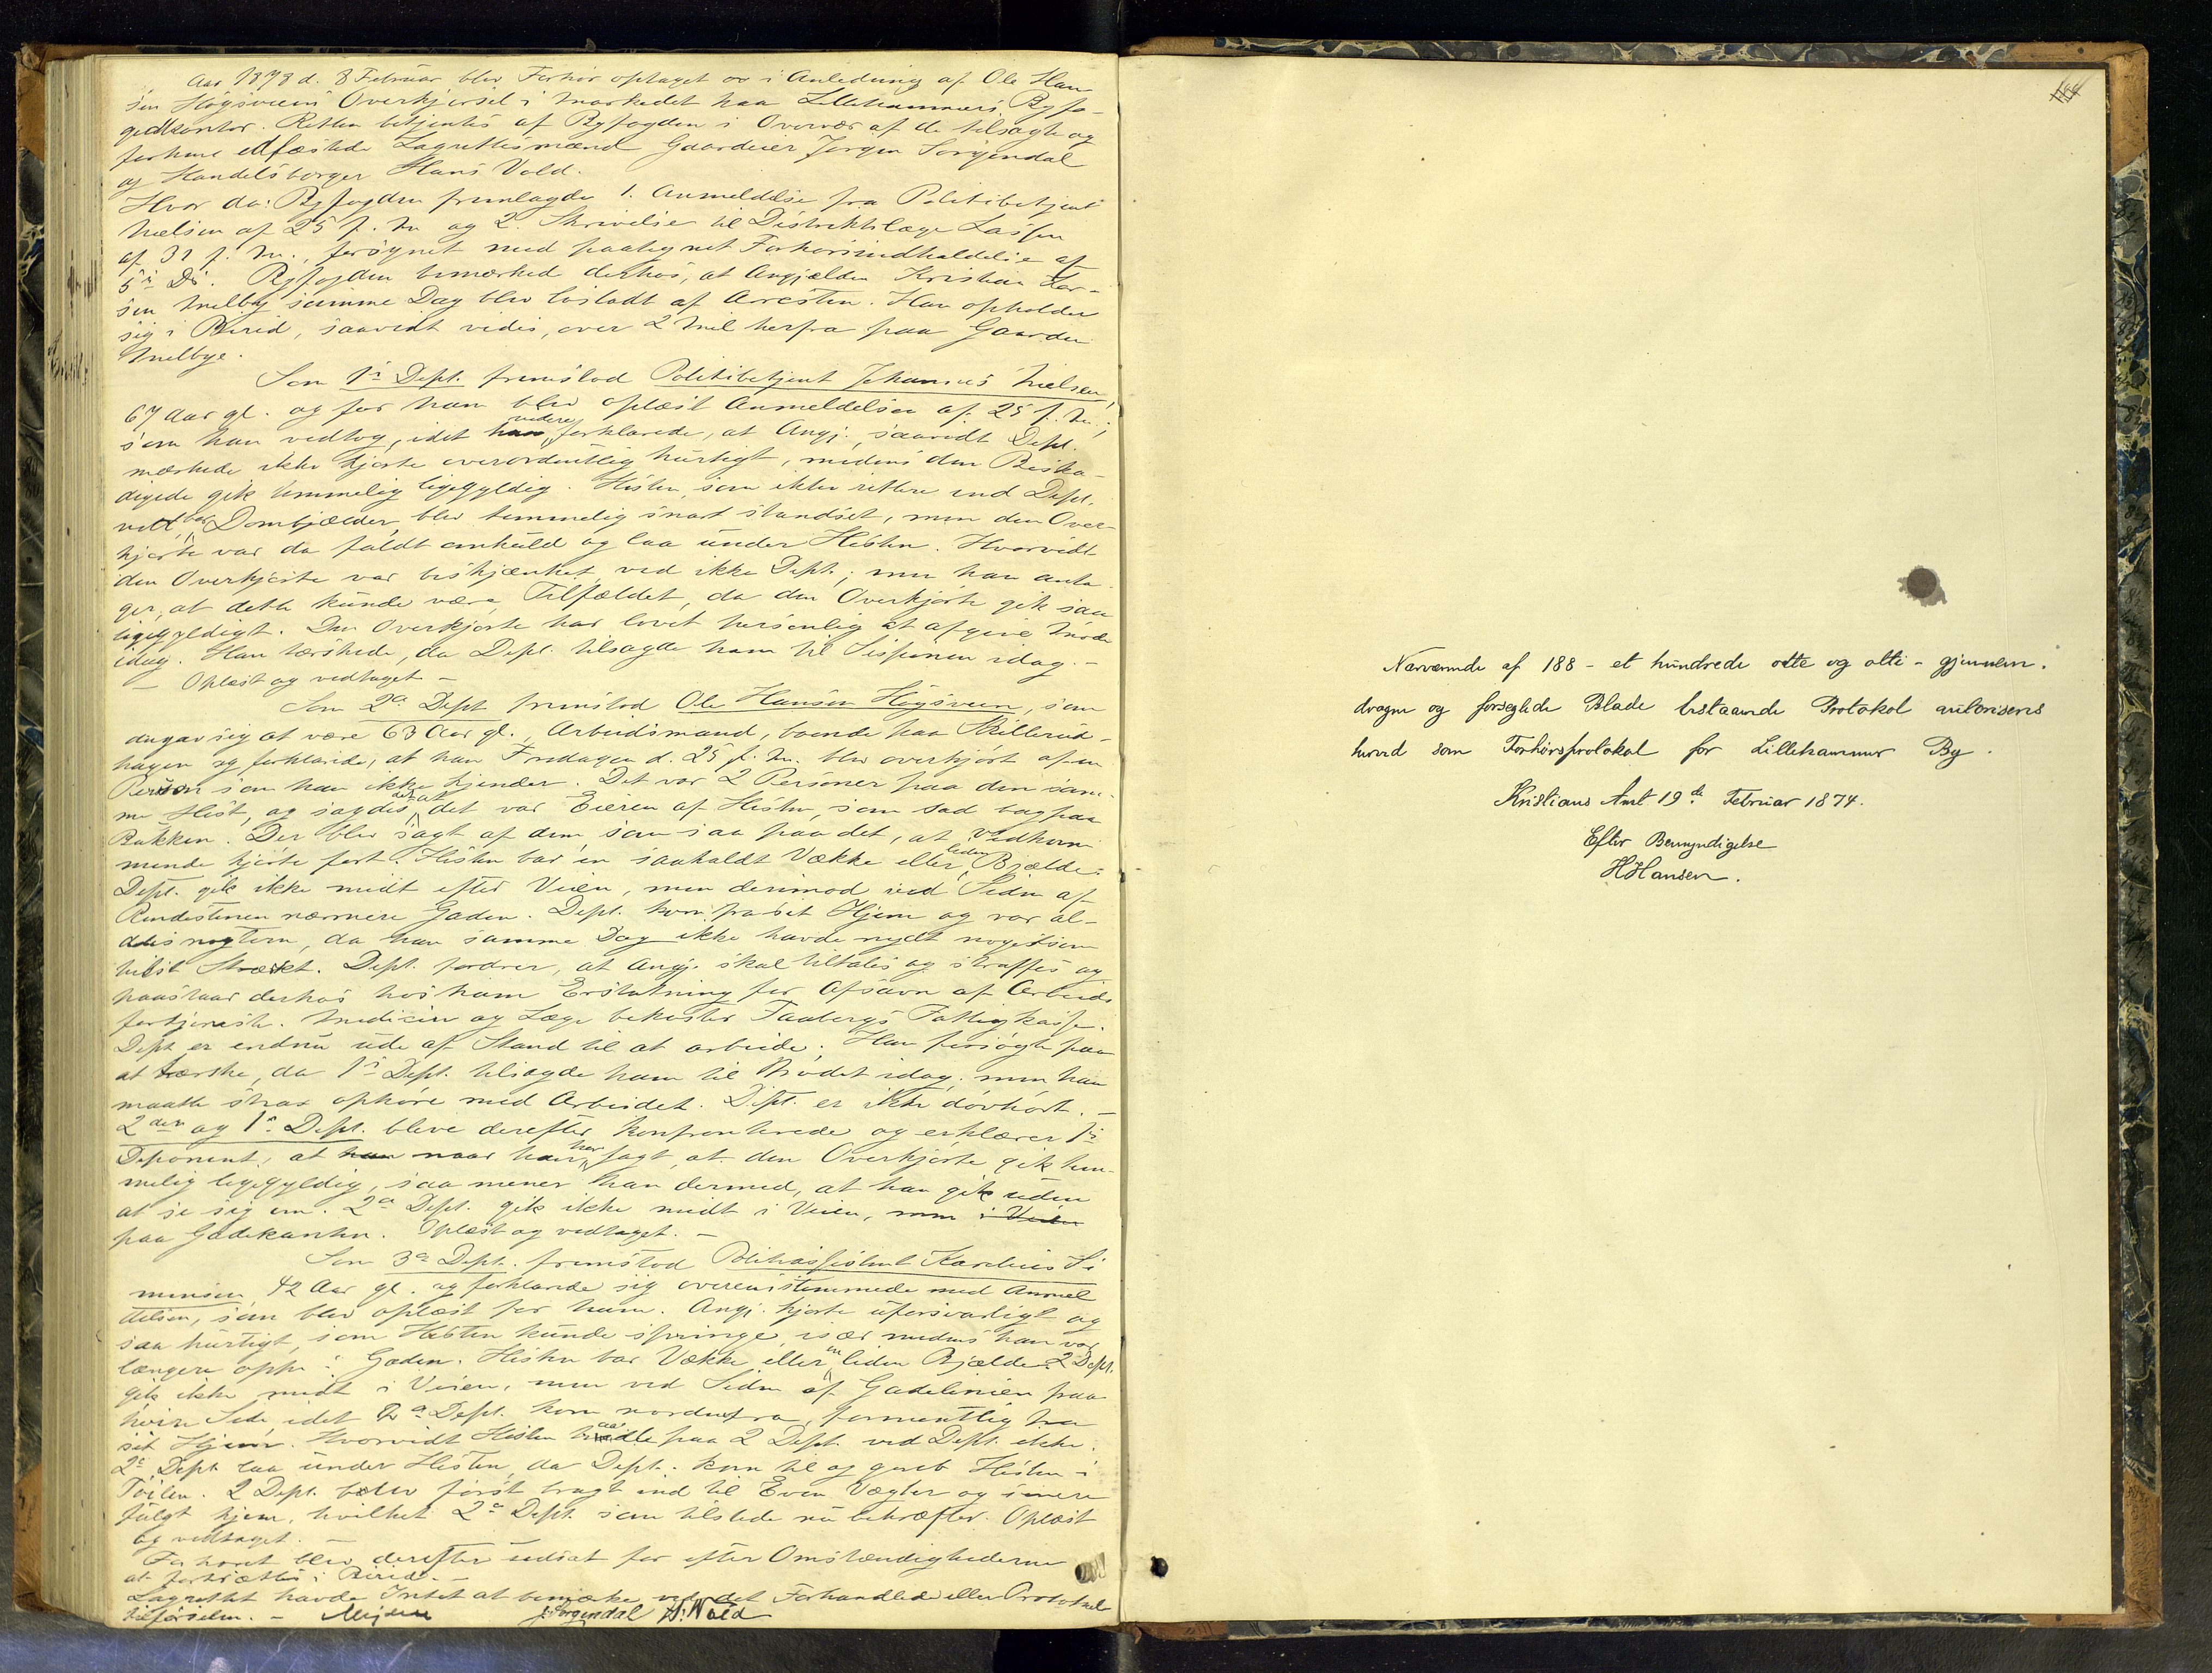 Aar 1878 d. 8 Februar blev Forhør optaget os i Anledning af Ole Han
sen Høgsveens Overkjørsel i Markedet paa Lillehammers Byfo-
gedkontor. Retten betjentes af Byfogden i Overvær af de tilsagte og
forhen edfæstede Lagrettesmænd Gaardeier Jørgen Sorgendal
og Handelsborger Hans Vold.
Hvor da: Byfogden fremlagde 1. Anmeldelse fra Politibetjent
Nielsen af 25 f. M. og 2. Skrivelse til Distriktslæge Lassen
af 31 f. M., forsynet med paategnet Forhørsindkaldelse af
5te Ds. Byfogden bemærked derhos, at Angjældte Kristian Lar-
sen Melby samme Dag blev løsladt af Arresten. Han opholder
sig i Birid, saavidt vides, over 2 Mil herfra paa Gaarden
Melbye.
Som 1ste Dept. fremstod Politibetjent Johannes Nielsen,
67 Aar gl. og for ham blev oplæst Anmeldelsen af 25 f. M.,
som han vedtog, idet han videre forklarede, at Angj., saavidt Dept.
mærkede ikke kjørte overordentlig hurtigt, medens den Beska-
digede gik temmelig ligegyldig. Hesten, som ikke rettere end Dept.
ved, bar Dombjælder, blev temmelig snart standset, men den Over-
kjørte var da faldt omkuld og laa under Hesten. Hvorvidt
den Overkjørte var beskjænket, ved ikke Dept.; men han anta-
ger, at dette kunde være Tilfældet, da den Overkjørte gik saa
ligegyldigt. Den Overkjørte har lovet personlig at afgive Møde
idag. Han tærskede, da Dept. tilsagde ham til Sessionen idag. -
- Oplæst og vedtaget -
Som 2det Dept fremstod Ole Hansen Høgsveen, som
angav sig at være 63 Aar gl., Arbeidsmand, boende paa Skillerud-
hagen og forklarede, at han Fredagen d. 25 f. M. blev overkjørt af en
Person som han ikke kjender. Det var 2 Personer paa den sam-
me Hest, og sagdes det at det var Eieren af Hesten, som sad bagpaa
Bukken. Der blev sagt af dem, som saa paa det, at vedkom-
mende kjørte fort. Hesten bar en saakaldt Vække eller liden Bjælde.
Dept. gik ikke midt efter Veien, men derimod ved Siden af
Rendestenen nærmere Gaden. Dept. kom fra sit Hjem og var al-
deles nøgtern, da han samme Dag ikke havde nydt nogetsom-
helst Stærkt. Dept. fordrer, at Angj. skal tiltales og straffes og
paastaar derhos hos ham Erstatning for Afsavn af Arbeids
fortjeneste. Medicin og Læge bekoster Faabergs Fattigkasse.
Dept er endnu ude af Stand til at arbeide. Han forsøgte paa
at tærske, da 1ste Dept. tilsagde ham til Mødet idag, men han
maatte strax ophøre med Arbeidet. Dept. er ikke døvhørt. -
2den og 1ste Dept. bleve derefter konfronterede og erklærer 1ste
Deponent, at han naar han har sagt, at den Overkjørte gik tem-
melig ligegyldig, saa mener han dermed, at han gik uden
at se sig om. 2det Dept. gik ikke midt i Veien, men i Veien
paa Gadekanten. Oplæst og vedtaget. -
Som 3die Dept. fremstod Politiassistent Karelius Si
mensen, 42 Aar gl. og forklarede sig overensstemmede med Anmel
delsen, som blev oplæst for ham. Angj. kjørte uforsvarligt og
saa hurtigt, som Hesten kunde springe, især medens han var
længere oppe i Gaden. Hesten bar Vække eller en liden Bjælde. 2 Dept.
gik ikke midt i Veien, men ved Siden af Gadelinien paa
høire Side idet 2det Dept. kom nordenfra, formentlig fra
sit Hjem. Hvorvidt Hesten traadte paa 2 Dept. ved Dept. ikke.
2det Dept laa under Hesten, da Dept. kom til og greb Hesten i
Tøilen. 2 Dept. blev først bragt ind til Even Vægter og senere
fulgt hjem, hvilket 2det Dept. som tilstede nu bekræfter. Oplæst
og vedtaget. -
Forhøret blev derefter udsat for efter Omstændighederne
at fortsættes i Birid. -
Lagrettet havde Intet at bemærke ved det Forhandlede eller Protokol
tilførselen. - J. Sorgendal H. Wold
188
Nærværende af 188 - et hundrede otte og otti - gjennem-
dragne og forseglede Blade bestaaende Protokol autoriseres
herved som Forhørsprotokol for Lillehammer By.
Kristians Amt 19de Februar 1874.
Efter Bemyndigelse
HHansen.